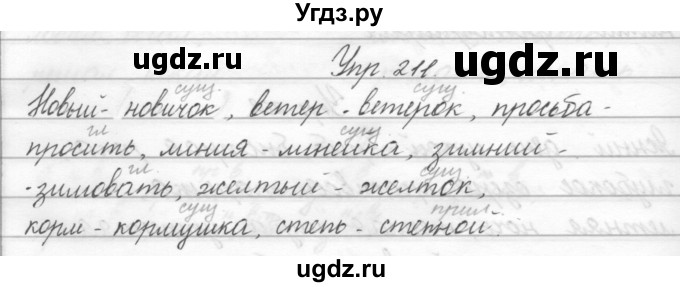 Угдз.ру
ugdz.ru ugdz.ru
Упр. 211.
сущ. сущ.
Новый - новичок, ветер - ветерок, просьба -
гл. сущ.
просить, линия - линейка, зимний -
гл. сущ.
- зимовать, желтый - желток,
сущ. прил.
корм - кормушка, степь - степной.
ugdz.ru ugdz.ru
ugdz.ru